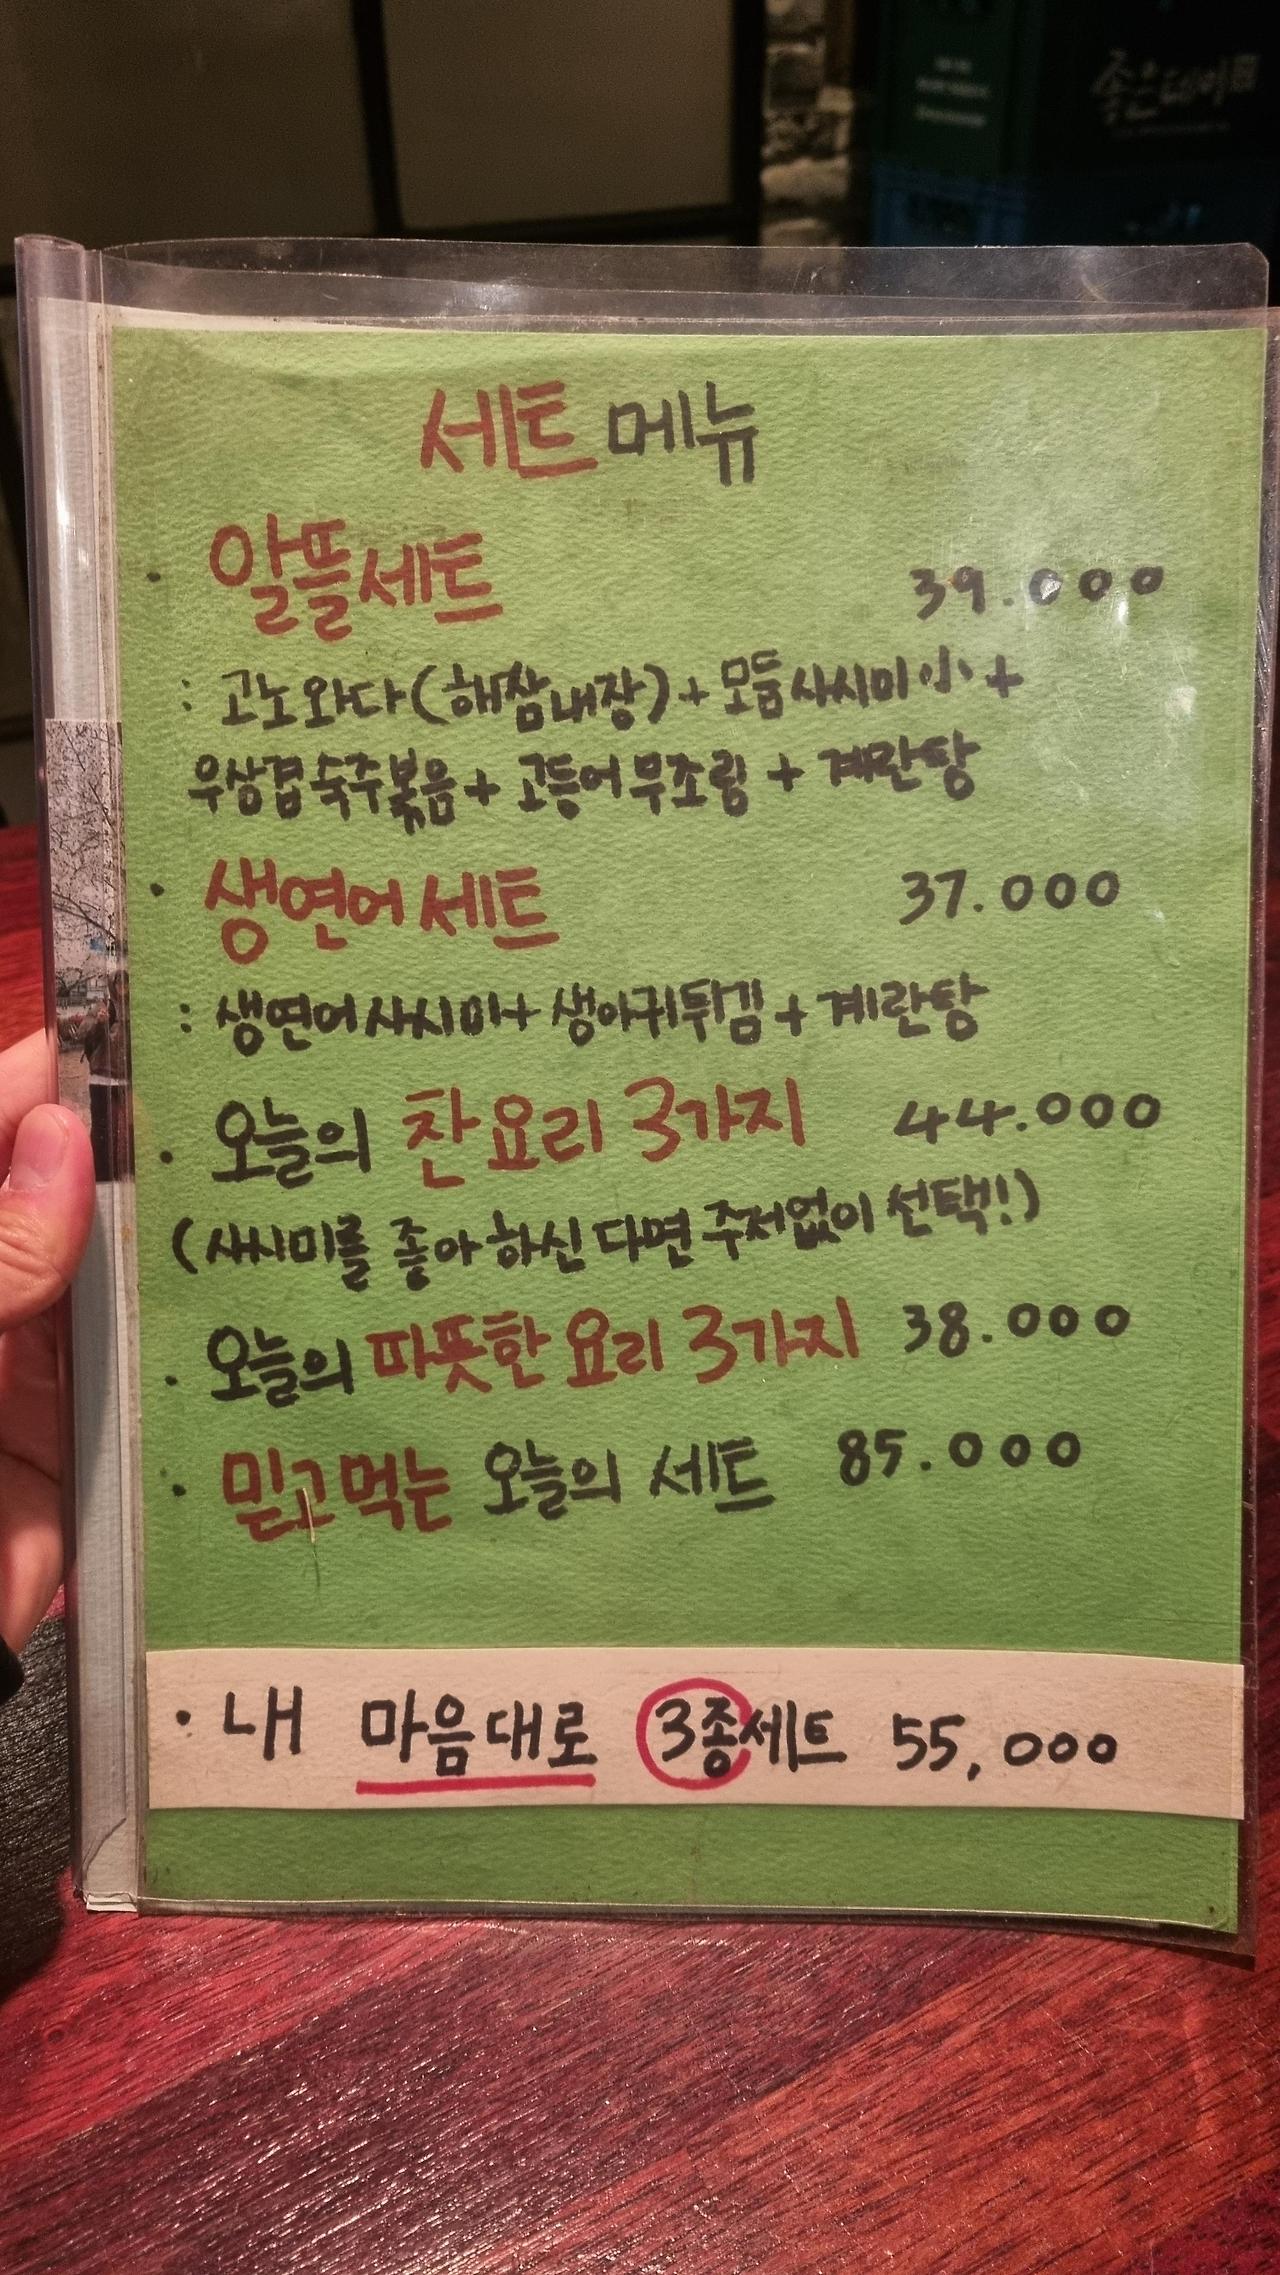 좋은데이
세트 메뉴
· 알뜰세트 39.000
: 고노와다(해삼내장)+모둠사시미小+
우삼겹숙주볶음+고등어무조림+계란탕
· 생연어세트 37.000
: 생연어사시미+생아귀튀김+계란탕
· 오늘의 찬요리 3가지 44.000
(사시미를 좋아하신다면 주저없이 선택!)
· 오늘의 따뜻한 요리 3가지 38.000
· 믿고먹는 오늘의 세트 85.000
· 내 마음대로 3종세트 55,000